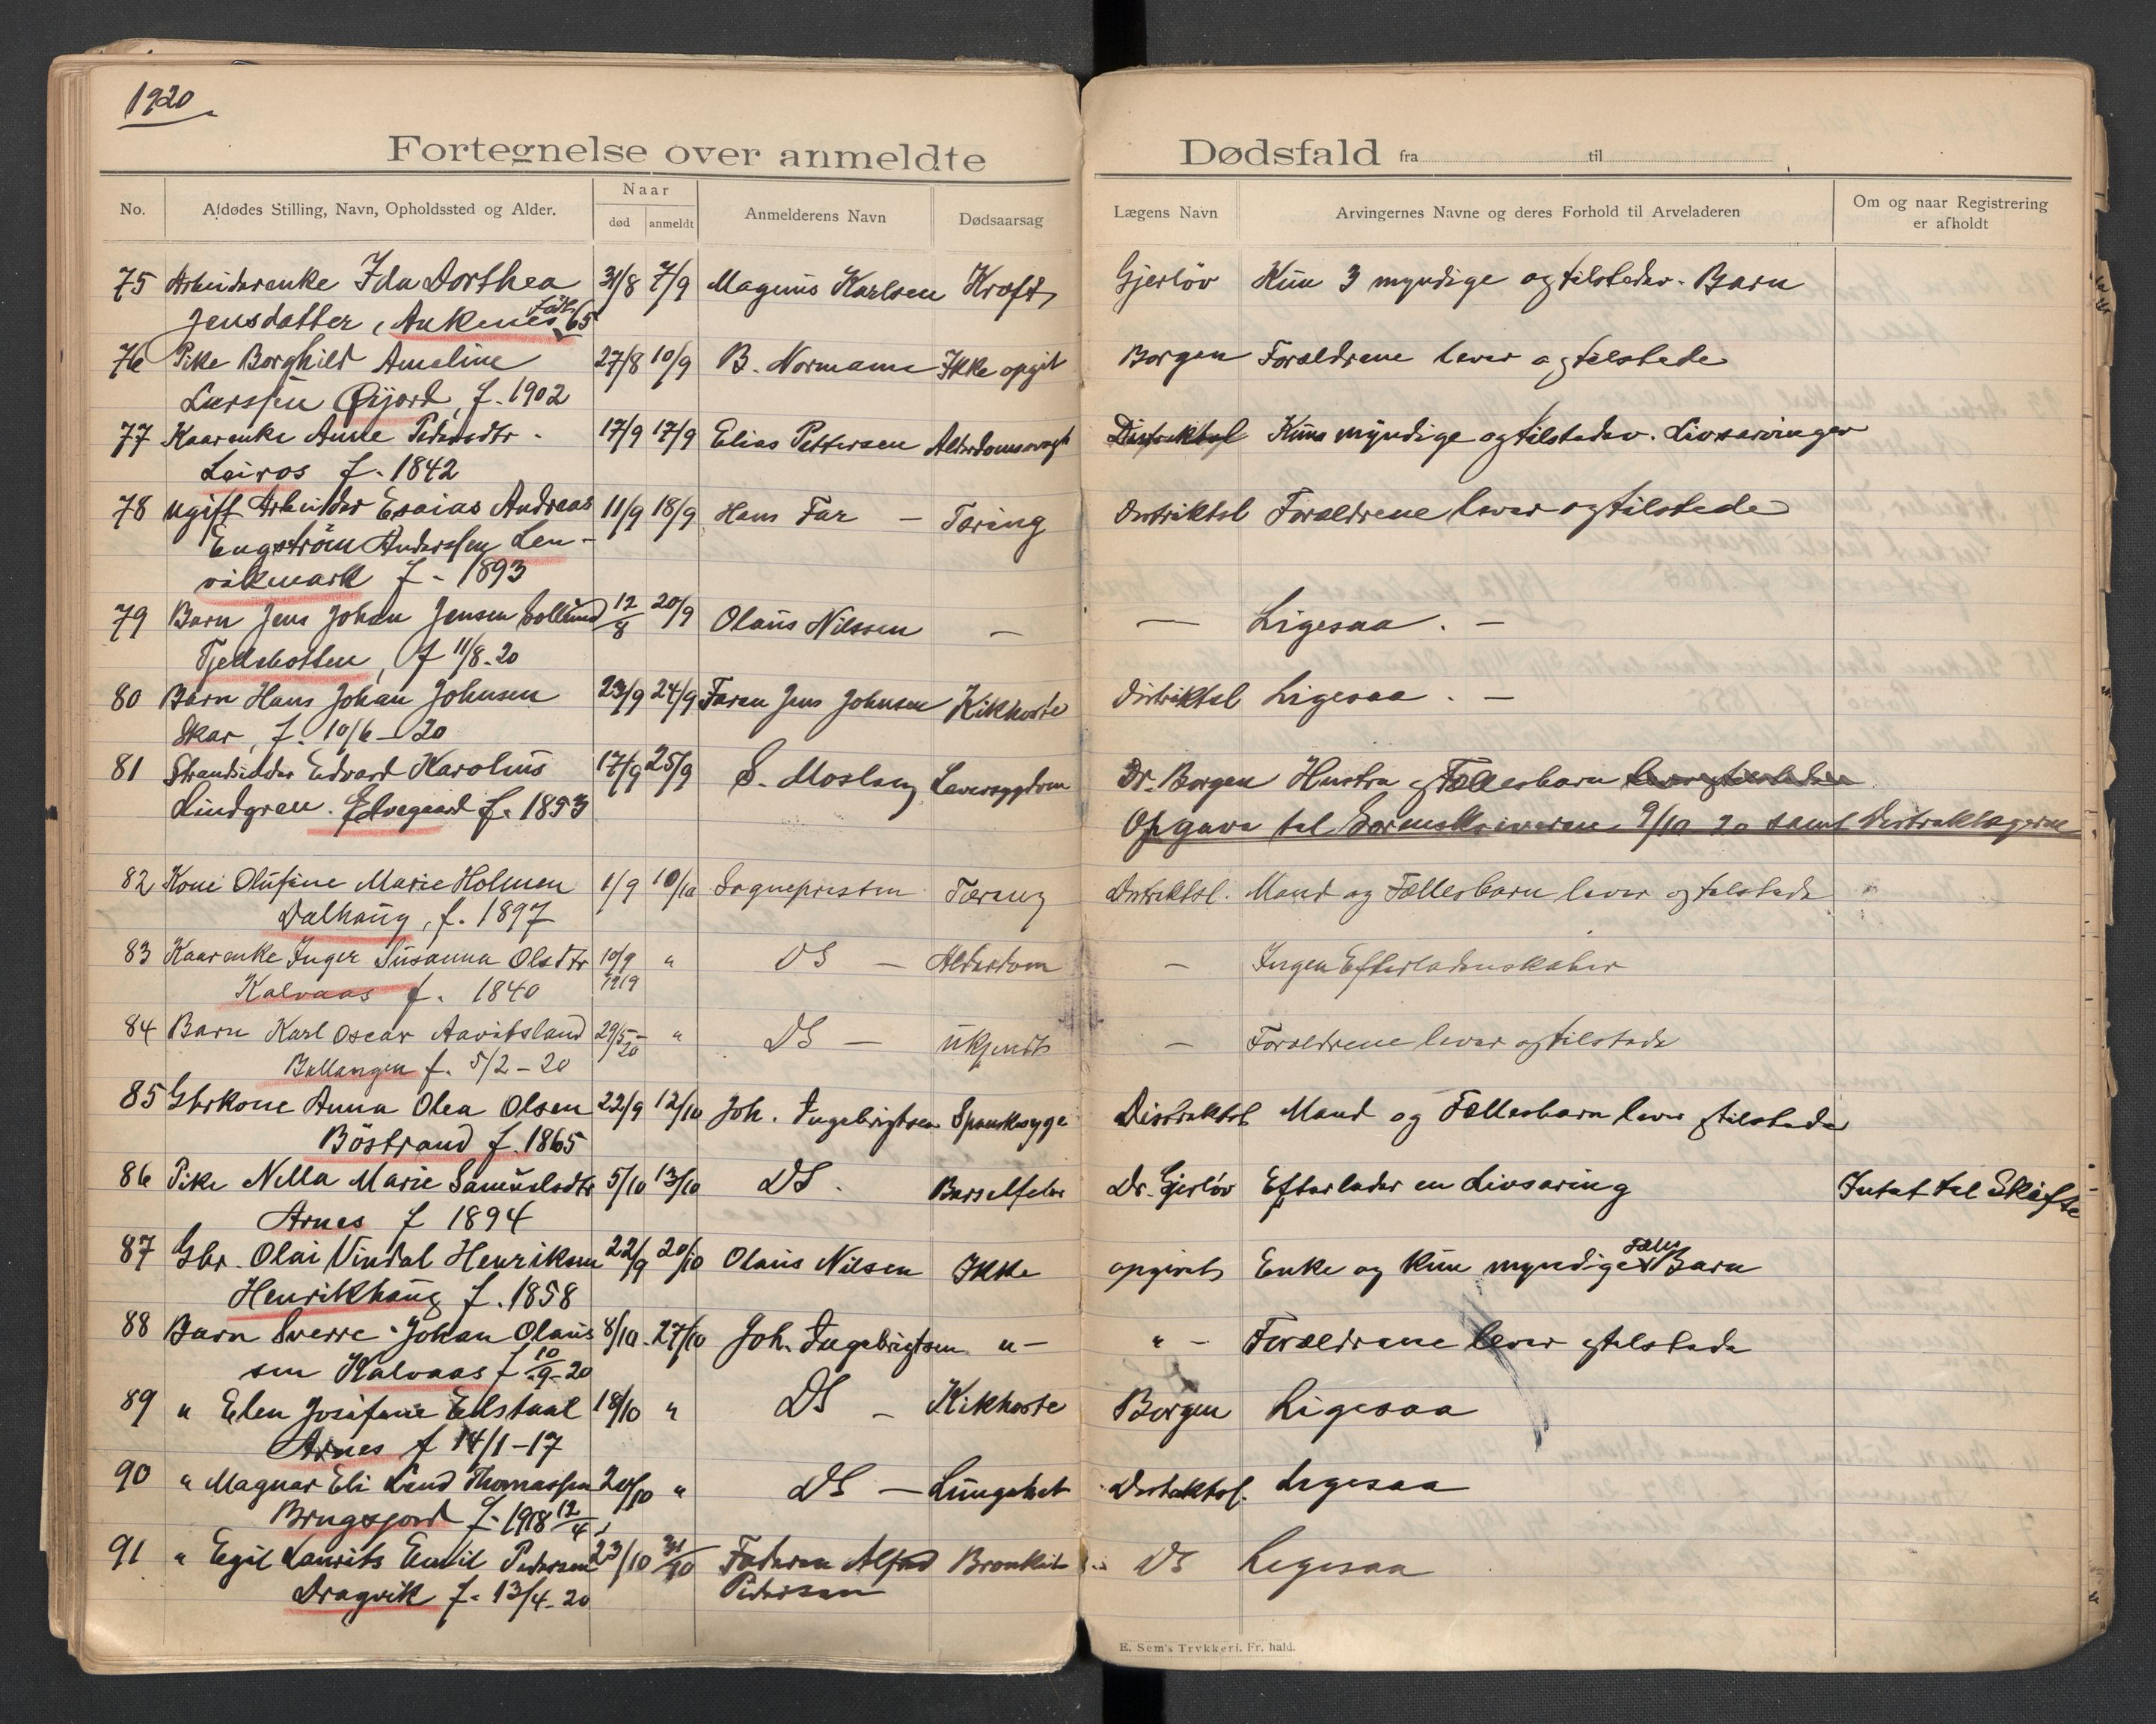 1920
Fortegnelse over anmeldte Dødsfald fra til
No. Afdødes Stilling, Navn, Opholdssted og Alder. Naar død anmeldt Anmelderens Navn Dødsaarsag Lægens Navn Arvingernes Navne og deres Forhold til Arveladeren Om og naar Registrering er afholdt
75 Arbeiderenke Ida Dorthea 31/8 7/9 Magnus Karlsen Kræft Gjerløv Kun 3 myndige og tilstedev. Barn
Jensdatter, Ankenes 65
76 Pike Borghild Ameline 27/8 10/9 B. Normann Ikke opgit Borgen Forældrene lever og tilstede
Larssen Øijord, f. 1902
77 Kaarenke Anne Pedersdtr. 17/9 17/9 Elias Pettersen Alderdomssvagh Distriktsl Kun myndige og tilstedev. Livsarvinger
Leiros f. 1842
78 ugift Arbeider Esaias Andreas 11/9 18/9 Hans Far — Tæring Distriktsl Forældrene lever og tilstede
Engström Anderssen Len-
vikmark f. 1893
79 Barn Jens Johan Jensen Sollund 12/8 20/9 Olaus Nilssen — — Ligesaa. —
Tjeldskotten, f 11/8-20
80 Barn Hans Johan Johnsen 23/9 24/9 Faren Jens Johnsen Kikhoste Distriktsl Ligesaa. —
Skar, f. 10/6-20
81 Strandsidder Edvard Karolius 17/9 25/9 S. Moslang Leversygdom Dr. Borgen Hustru og Fællesbarn
Lindgren. Elvegaard f. 1853 Opgave til Sorenskriveren 9/10 20 samt Distriktslægerne
82 Kone Olufine Marie Holmen 1/9 10/10 Sognepresten Tæring Distriktsl. Mand og Fællesbarn lever og tilstede
Dalhaug, f. 1897
83 Kaarenke Inger Susanna Olsdtr 10/9 1919 " DS — Alderdom — Ingen Efterladenskaber
Kalvaas f. 1840
84 Barn Karl Oscar Aavitsland 29/5-20 " DS — ukjendt — Forældrene lever og tilstede
Ballangen f. 5/2-20
85 Gbrkone Anna Olea Olsen 22/9 12/10 Joh. Ingebrigtsen Spanksyge Distriktsl Mand og Fællesbarn lever og tilstede
Böstrand f. 1865
86 Pike Nella Marie Samuelsdtr 5/10 13/10 DS. Barselfeber Dr. Gjerløv Efterlader en Livsarving Intet til Skifte
Arnes f 1894
87 Gbr. Olai Vindal Henriksen 22/9 20/10 Olaus Nilsen Ikke opgivet Enke og kun myndige Fælles Barn
Henrikhaug f. 1858
88 Barn Sverre Johan Olaus 8/10. 27/10 Joh. Ingebrigtsen "— "— Forældrene lever og tilstede
sen Kalvaas f 10/9-20
89 " Elen Josefine Edstaal 18/10 " DS — Kikhoste Borgen Ligesaa
Arnes f 14/1-17
90 " Magnar Eli Lind Thomassen 20/10 " DS — Lungebet Distriktsl. Ligesaa
Brugsjord f. 1918 12/4
91 " Egil Laurits Emil Pedersen 23/10 31/10 Faderen Alfred Bronkit DS Ligesaa
Dragvik f. 13/4-20 Pedersen
E. Sem's Trykkeri. Fr. hald.